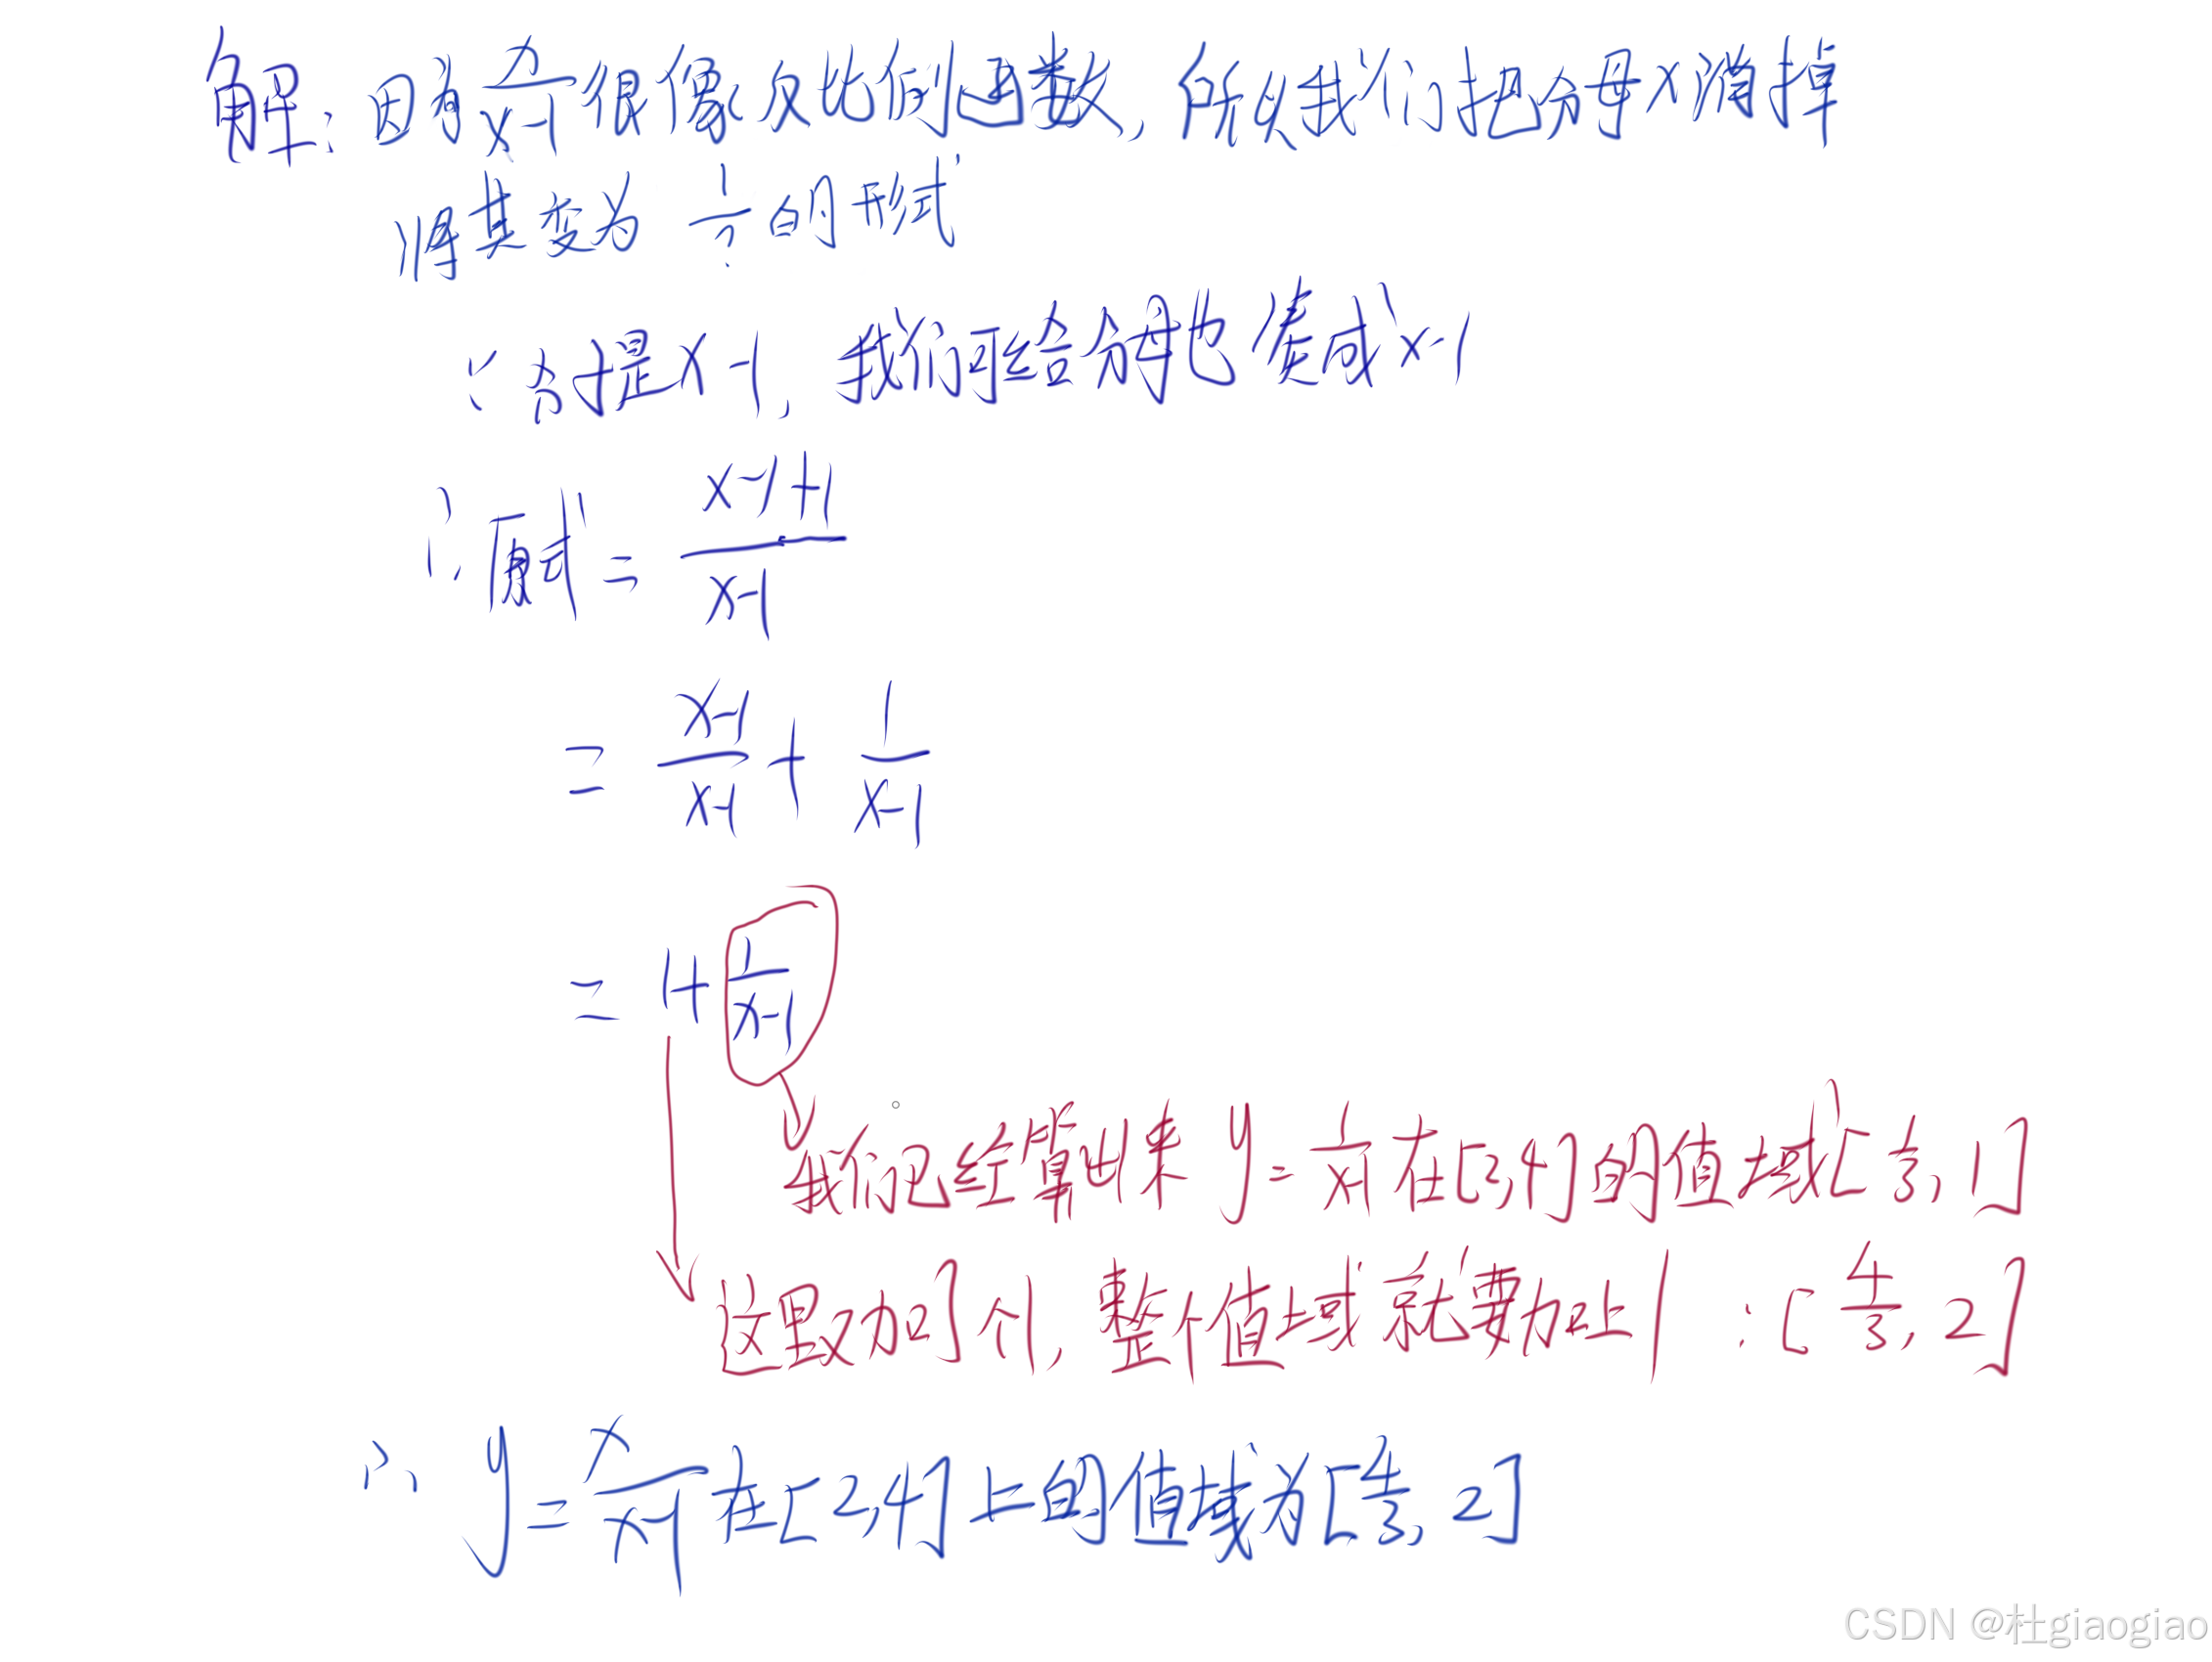 解：因为 x/(x-1) 很像反比例函数，所以我们把分母x消掉
将其变为 1/? 的形式
∵ 分母是x-1，我们可以给分母也凑成x-1
∴ 原式 = (x-1+1)/(x-1)
= (x-1)/(x-1) + 1/(x-1)
= 1+ 1/(x-1)
我们已经算出来 y= 1/(x-1) 在[2,4]的值域[1/3, 1]
这里又加了个1，整个值域就要加上1：[4/3, 2]
∴ y= x/(x-1) 在[2,4]上的值域为[4/3, 2]
CSDN @杜giaogiao